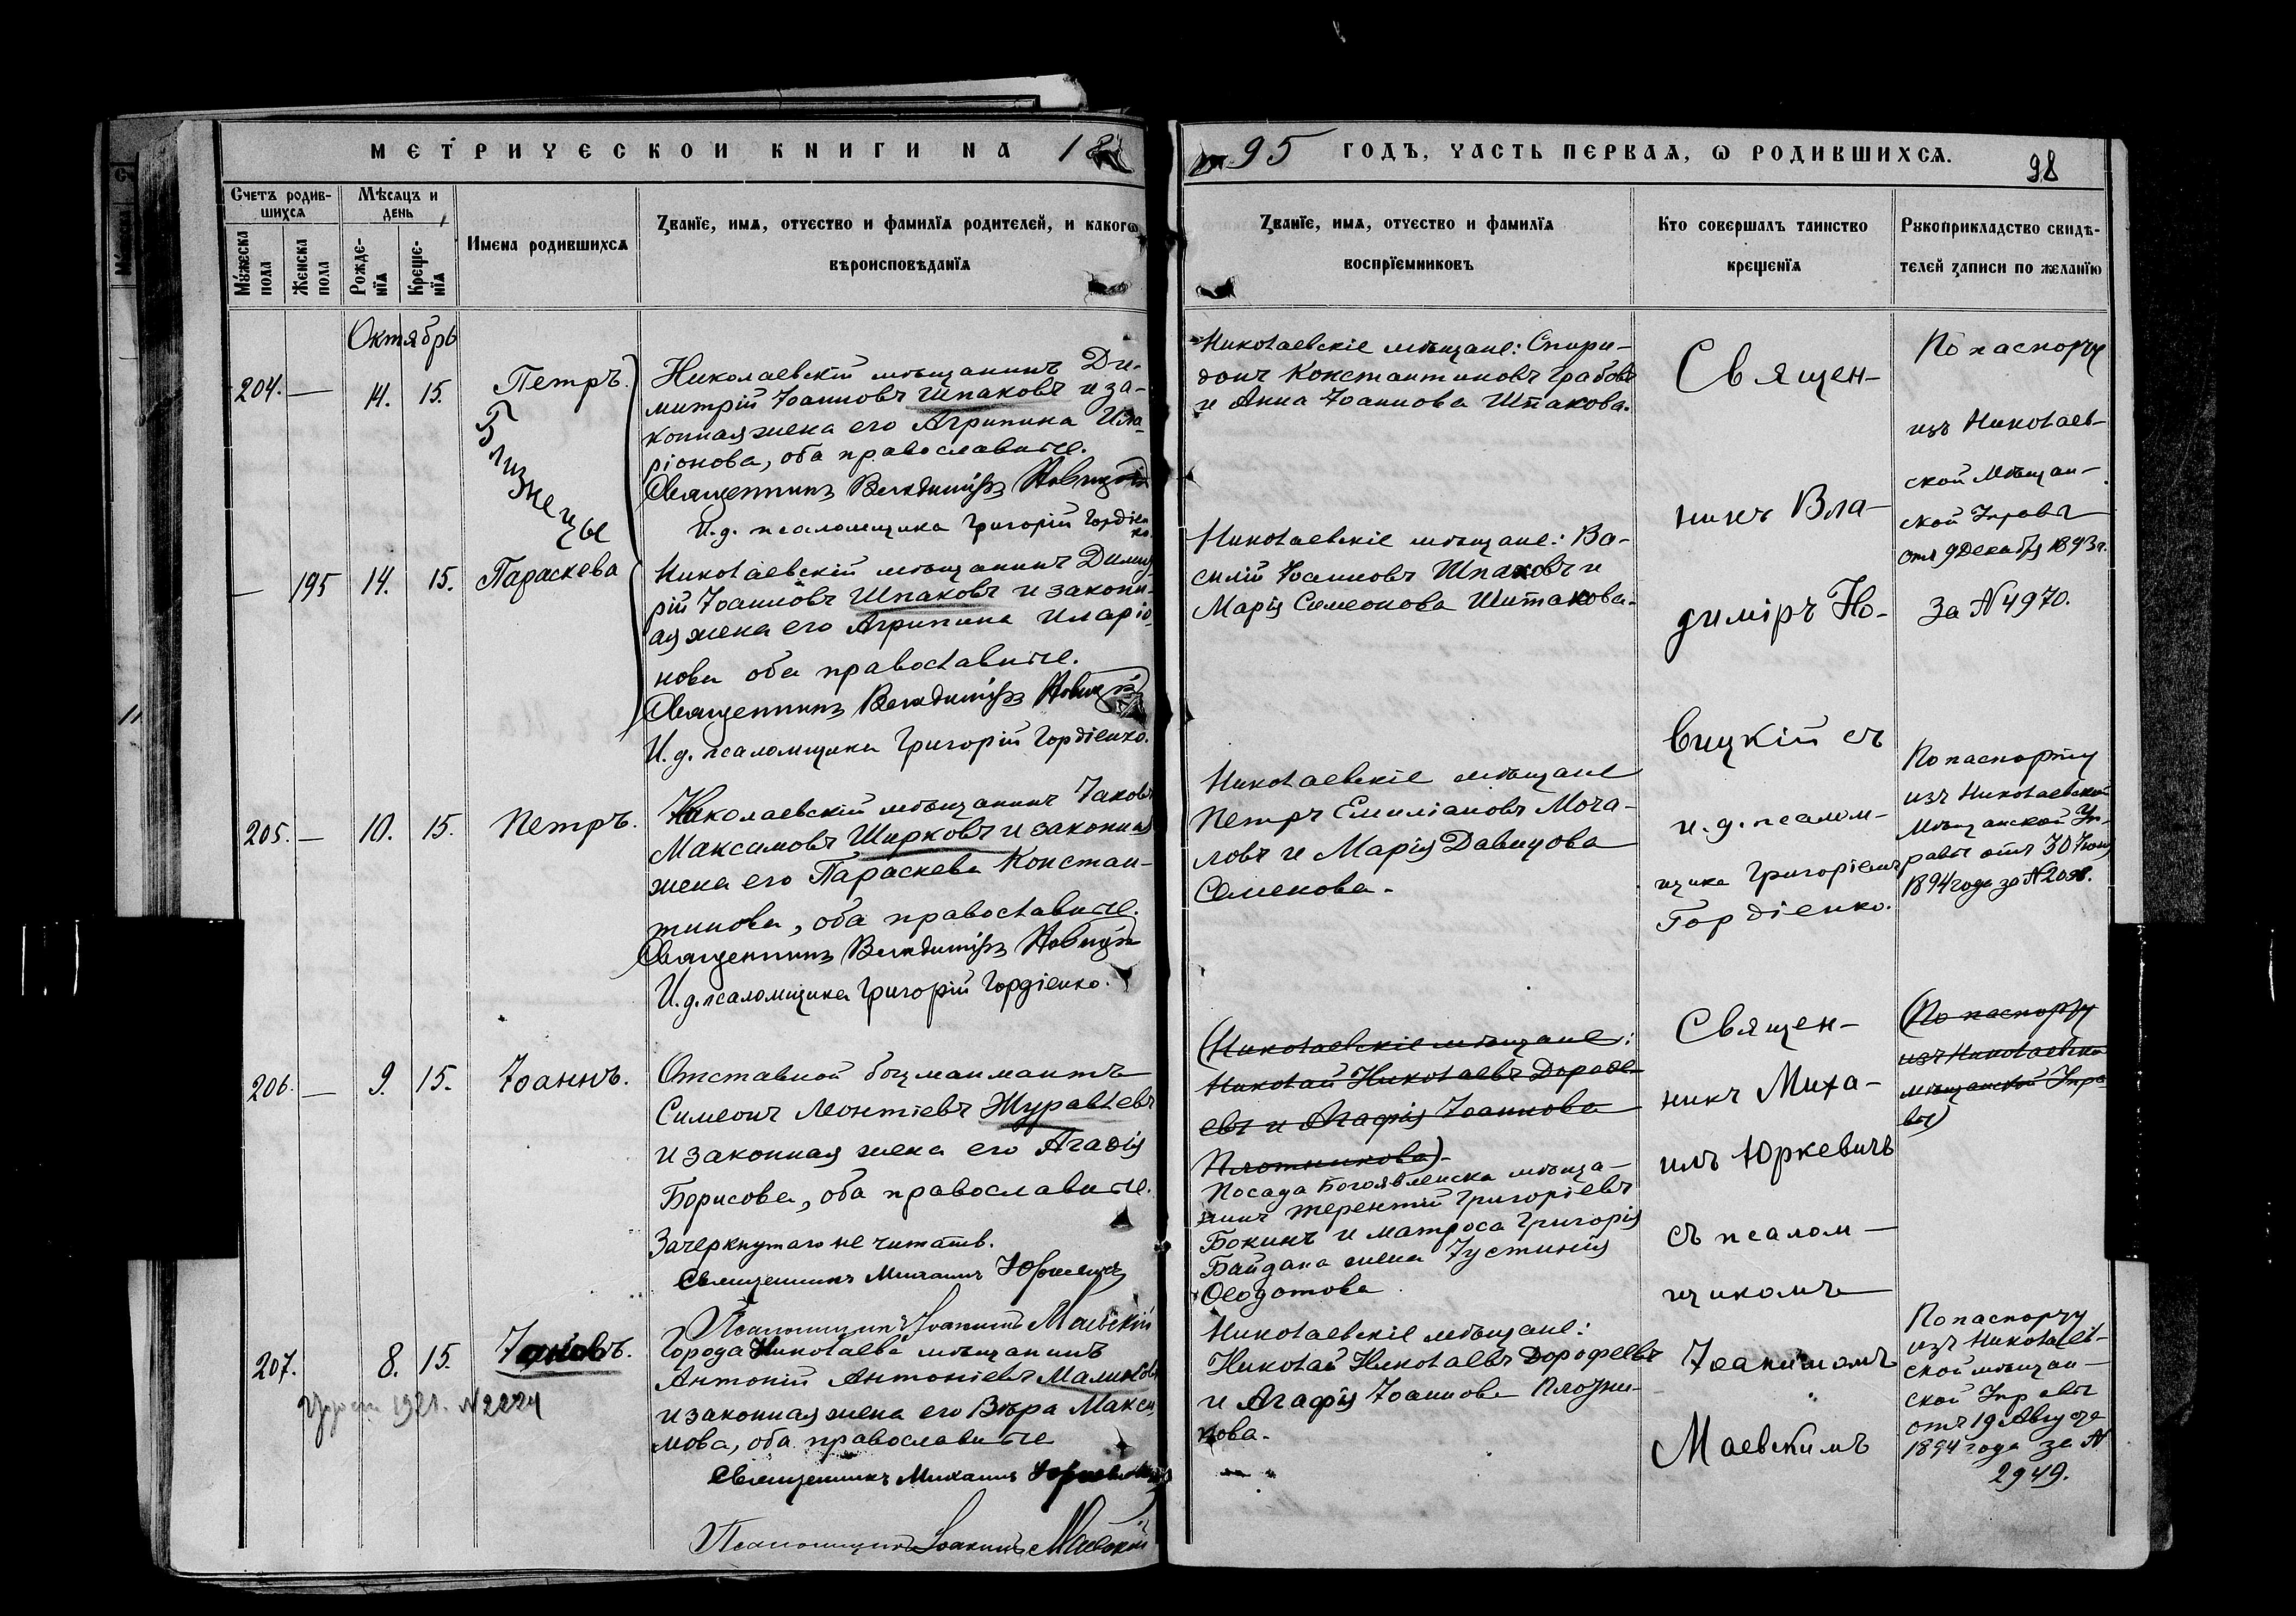 МЕТРИЧЕСКОЙ КНИГИ НА 18
95 ГОДЪ, ЧАСТЬ ПЕРВАЯ, Ѡ РОДИВШИХСЯ.
98
Счетъ родив-
шихся
Мѣсяцъ и
день
Мужеска
пола
Женска
пола
Рожде-
нїя
Креще-
нїя
Имена родившихся
Званїе, имя, отчество и фамилїя родителей, и какогѡ
вѣроисповѣданїя
Званїе, имя, отчество и фамилїя
воспрїемниковъ
Кто совершалъ таинство
крещенїя
Рукоприкладство свидѣ-
телей записи по желанїю
Октябрь
204. — 14. 15. Петръ.
Близнецы
Николаевскій мѣщанинъ Ди-
митрій Іоанновъ Шпаковъ и за-
конная жена его Агрипина Ила-
ріонова, оба православные.
Священникъ Владиміръ Новицкій
И.д. псаломщика Григорій Гордіен-
ко.
Николаевскіе мѣщане: Спири-
донъ Константиновъ Грабовъ
и Анна Іоаннова Шпакова.
— 195 14. 15. Параскева
Николаевскій мѣщанинъ Димит-
рій Іоанновъ Шпаковъ и законн-
ая жена его Агрипина Иларіо-
нова оба православные.
Священникъ Владиміръ Новицкій
И.д. псаломщика Григорій Гордіенко.
Николаевскіе мѣщане: Ва-
силій Іоанновъ Шпаковъ и
Марія Симеонова Шпакова.
Священ-
никъ Вла-
диміръ Но-
вицкій съ
и.д. псалом-
щика Григоріемъ
Гордіенко.
По паспорту
изъ Николаев-
ской Мѣщан-
ской Управы
отъ 9 Декабря 1893 г.
за № 4970.
205. — 10. 15. Петръ.
Николаевскій мѣщанинъ Іаковъ
Максимовъ Ширковъ и законная
жена его Параскева Констан-
тинова, оба православные.
Священникъ Владиміръ Новицкій
И.д. псаломщика Григорій Гордіенко.
Николаевскіе мѣщане
Петръ Емиліановъ Моча-
ловъ и Марія Давидова
Семенова.
По паспорту
изъ Николаевской
Мѣщанской Уп-
равы отъ 30 Іюня
1894 года за №
206. — 9. 15. Іоаннъ.
Отставной боцманматъ
Симеонъ Леонтіевъ Журавлевъ
и законная жена его Агафія
Борисова, оба православные.
Зачеркнутаго не читать.
Священникъ Михаилъ Юркевичъ
Псаломщикъ Іоакимъ Маевскій
(Николаевскіе мѣщане:
Николай Николаевъ Дорофе-
евъ и Агафія Іоаннова
Плотникова).
Посада Богоявленска мѣща-
нинъ Терентій Григоріевъ
Бокинъ и матроса Григорія
Байдака жена Іустинія
Ѳеодотова
Священ-
никъ Миха-
илъ Юркевичъ
съ псалом-
щикомъ
Іоакимомъ
Маевскимъ
(По паспорту
изъ Николаевской
мѣщанской Упра-
вы)
207. 8. 15. Іаковъ.
1921. № 2224
Города Николаева мѣщанинъ
Антоній Антоніевъ Малиновъ
и законная жена его Вѣра Макси-
мова, оба православные
Священникъ Михаилъ Юркевичъ
Псаломщикъ Іоакимъ Маевскій
Николаевскіе мѣщане:
Николай Николаевъ Дорофеевъ
и Агафія Іоаннова Плотни-
кова.
По паспорту
изъ Николаев-
ской мѣщан-
ской Управы
отъ 19 Августа
1894 года за №
2949.